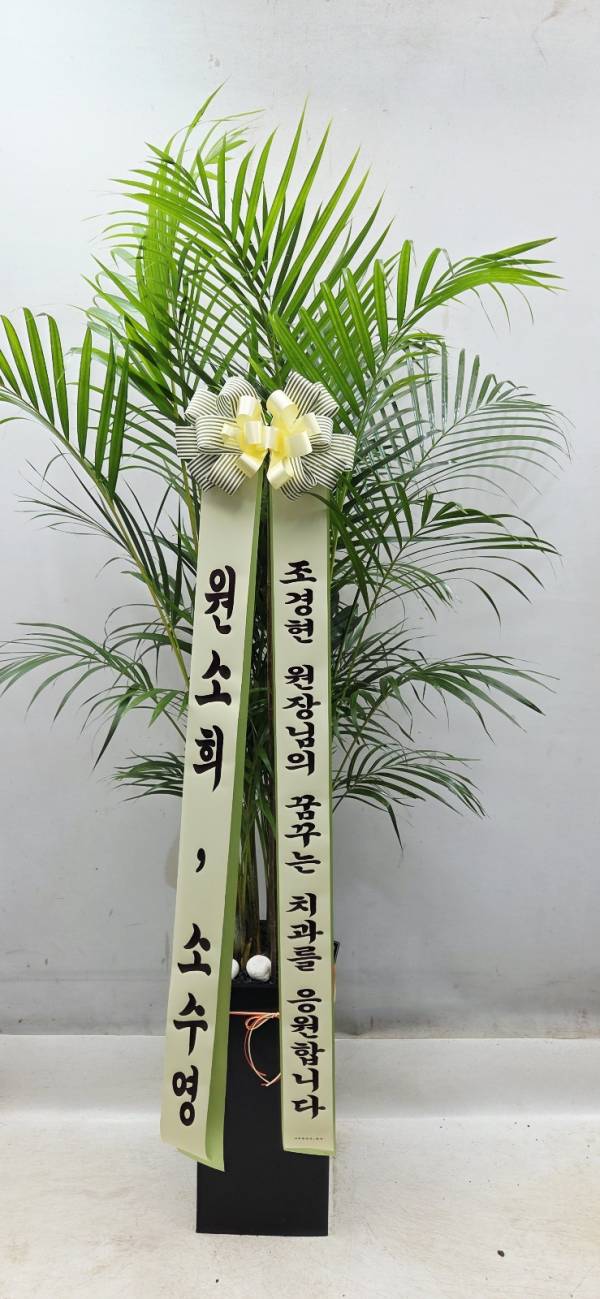 원소희, 소수영
조경현 원장님의 꿈꾸는 치과를 응원합니다